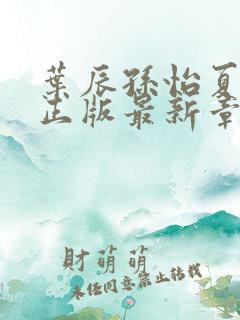 葉辰孫怡夏
正版最新章
財萌萌
未經同意禁止轉載